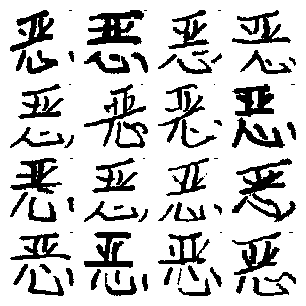 恶恶恶恶
恶恶恶恶
恶恶恶恶
恶恶恶恶